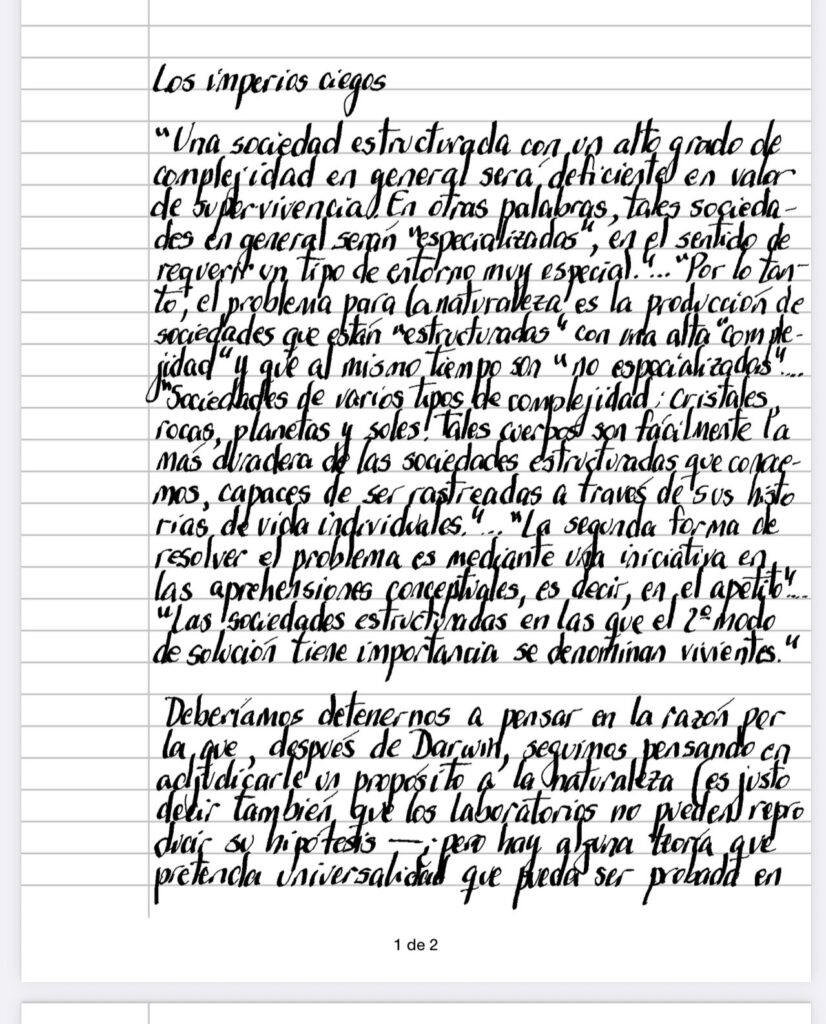 Los imperios ciegos
"Una sociedad estructurada con un alto grado de
complejidad en general será deficiente en valor
de supervivencia. En otras palabras, tales socieda-
des en general serán "especializadas", en el sentido de
requerir un tipo de entorno muy especial."... "Por lo tan-
to, el problema para la naturaleza es la producción de
sociedades que están "estructuradas" con una alta "comple-
jidad" y que al mismo tiempo son "no especializadas"...
"Sociedades de varios tipos de complejidad: cristales,
rocas, planetas y soles. Tales cuerpos son fácilmente la
más duradera de las sociedades estructuradas que conoce-
mos, capaces de ser rastreadas a través de sus histo
rias de vida individuales."... "La segunda forma de
resolver el problema es mediante una iniciativa en
las aprehensiones conceptuales, es decir, en el apetito"...
"Las sociedades estructuradas en las que el 2º modo
de solución tiene importancia se denominan vivientes."
Deberíamos detenernos a pensar en la razón por
la que, después de Darwin, seguimos pensando en
adjudicarle un propósito a la naturaleza (es justo
decir también que los laboratorios no pueden repro
ducir su hipótesis —; pero hay alguna teoría que
pretenda universalidad que pueda ser probada en
1 de 2